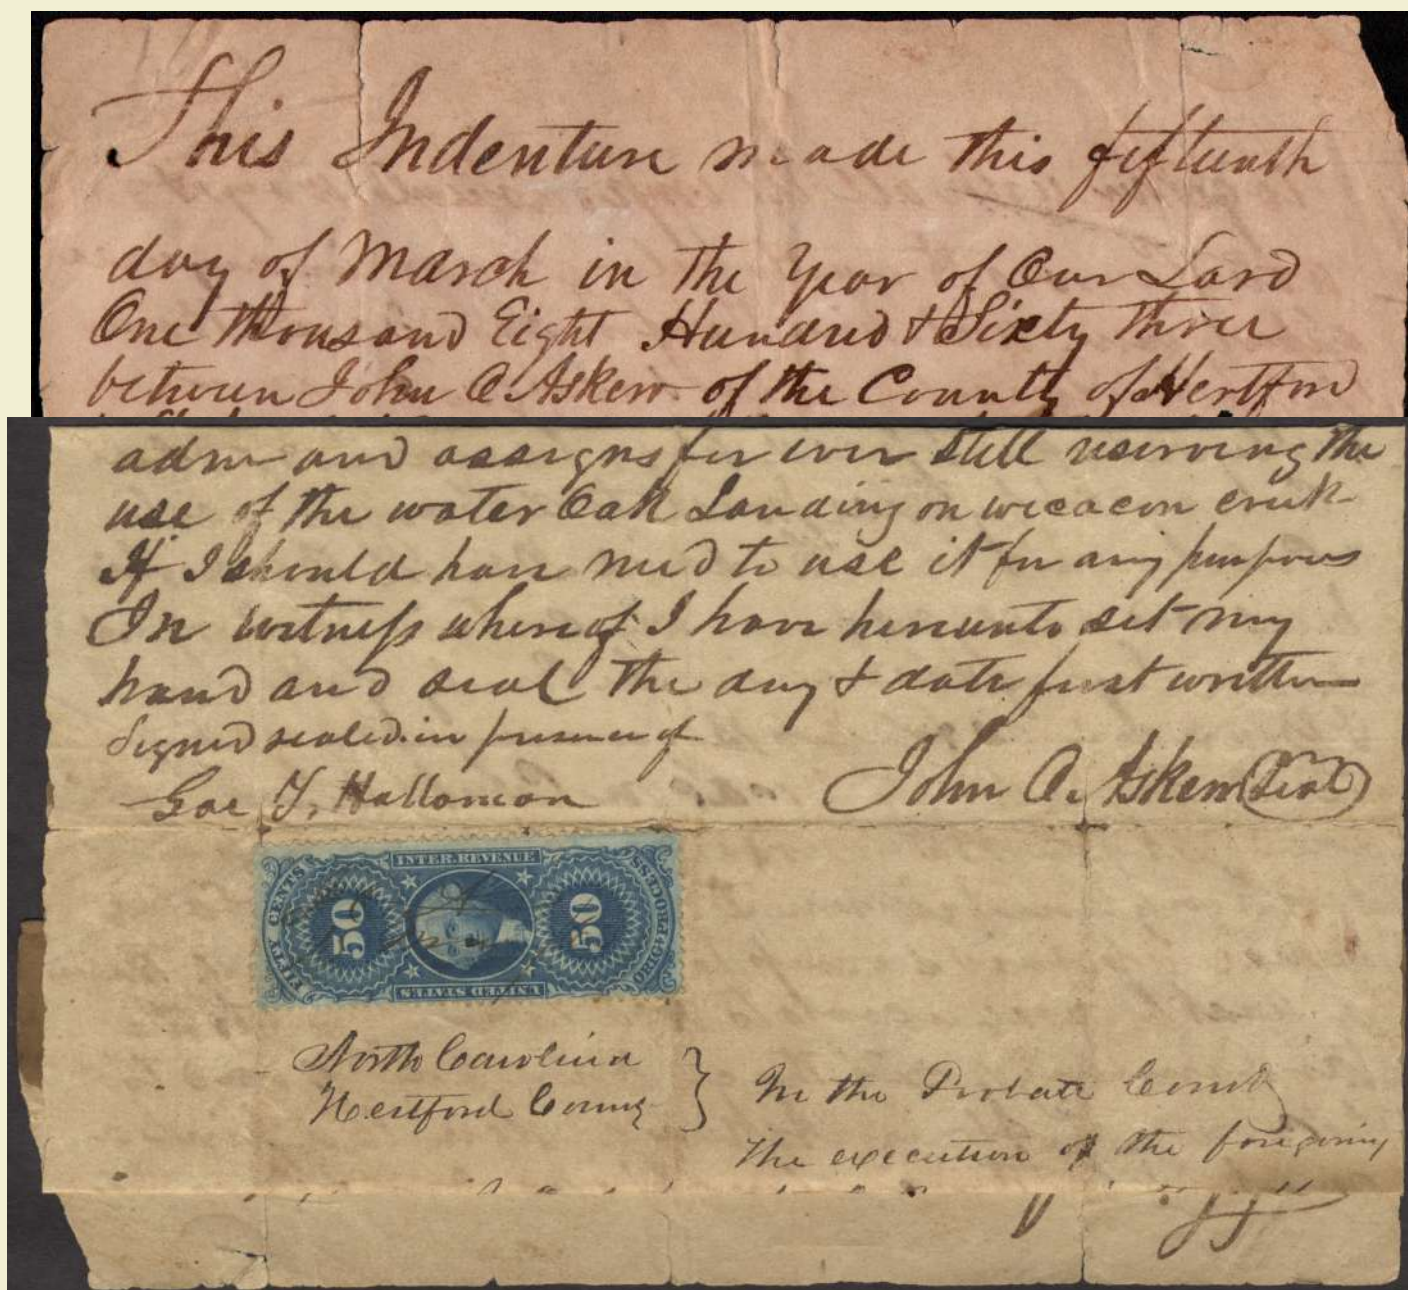 This Indenture made this fifteenth
day of March in the Year of Our Lord
One thousand Eight Hundred & Sixty three
between John C. Askew of the County of Hertford
adm and assigns for ever still reserving the
use of the water Oak Landing on wicacon creek
If I should have need to use it for any purposes
In witness whereof I have hereunto set my
hand and seal the day & date first written
Signed sealed in presence of
Geo T. Halloman
John C. Askew (Seal)
INTER. REVENUE
FIFTY CENTS
50
50
ORIG. PROCESS
UNITED STATES
North Carolina
Hertford County
In the Probate Court
The execution of the foregoing